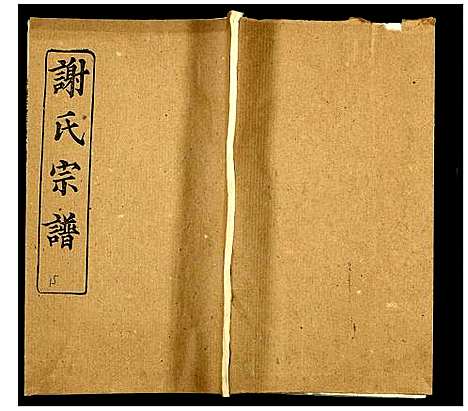 謝氏宗譜
15